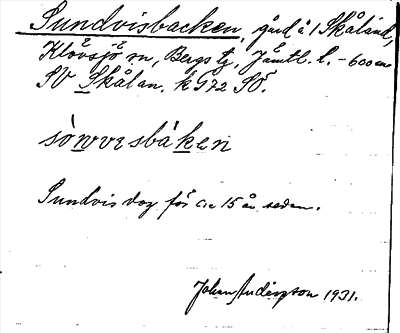 Sundvisbacken, gård å 1 Skålan,
Klövsjö sn, Bergs tg, Jämtl. l. – 600 m
SV Skålan. k 972 SO.
sònvvesbàken
Sundvis dog för c:a 15 år sedan.
Johan Andersson 1931.